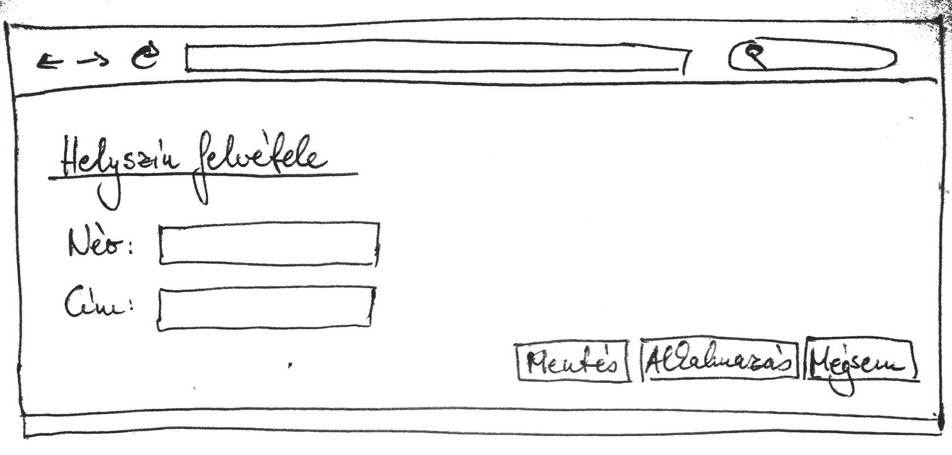 Helyszín felvétele
Név:
Cím:
Mentés Alkalmazás Mégsem